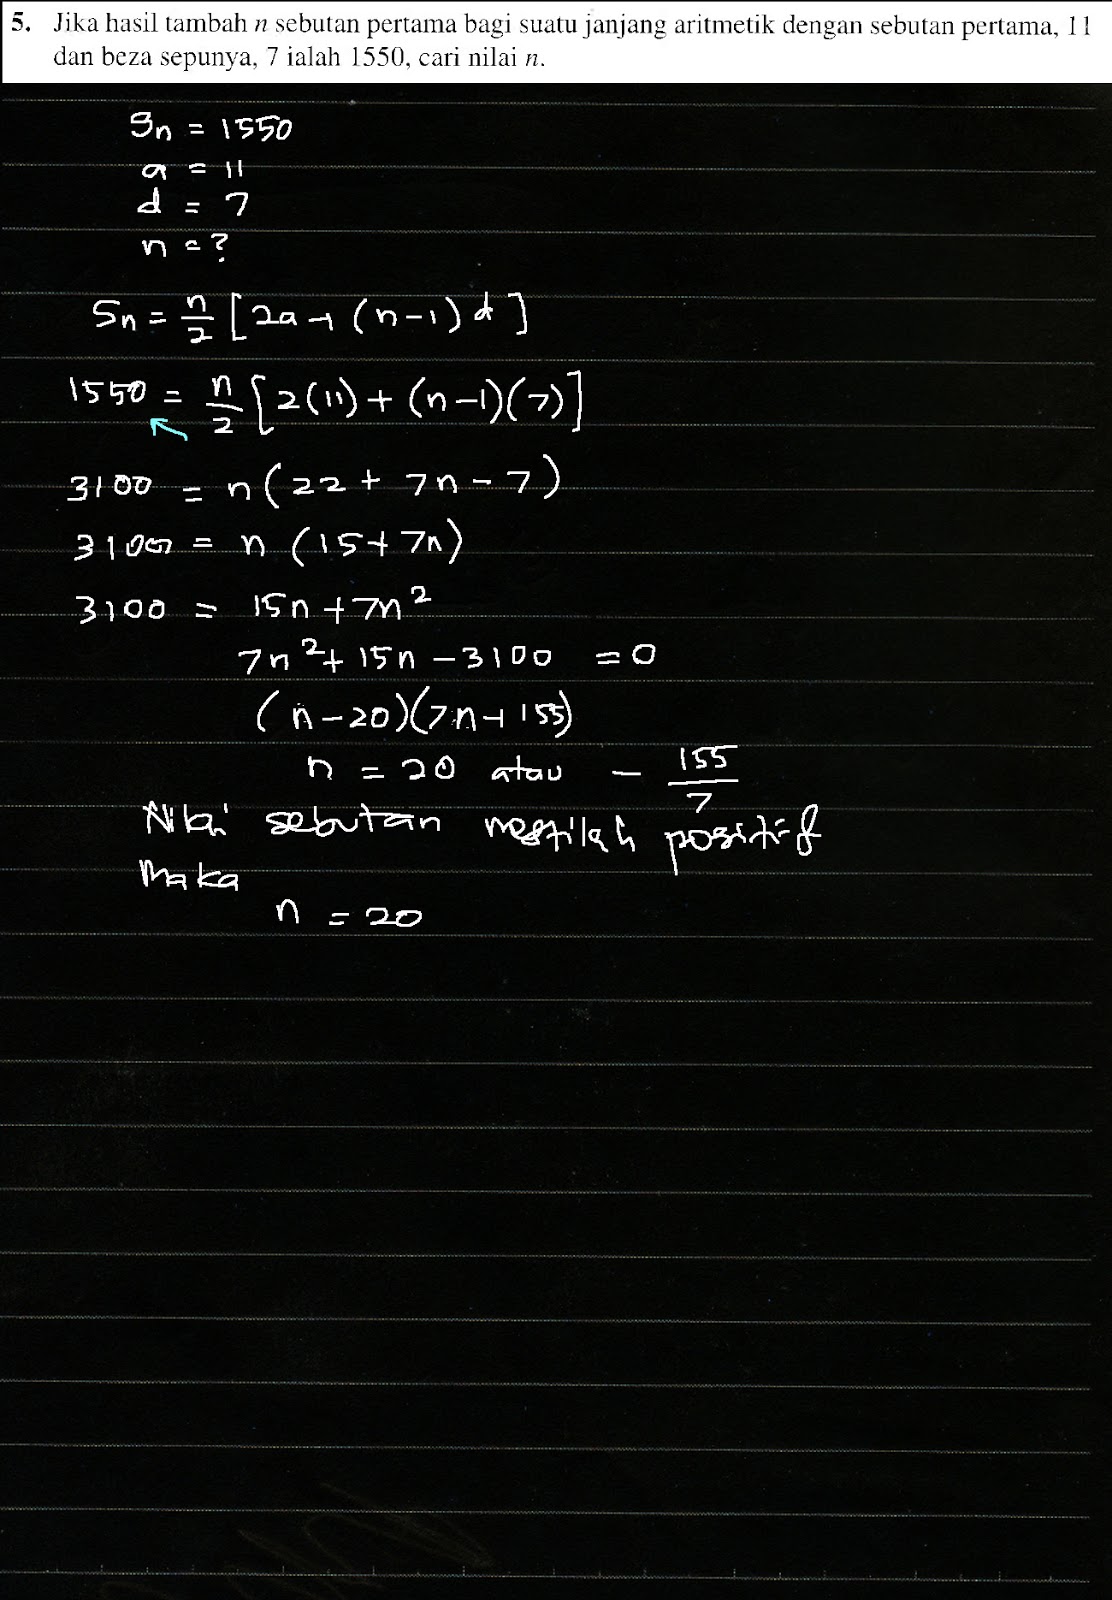 5. Jika hasil tambah n sebutan pertama bagi suatu janjang aritmetik dengan sebutan pertama, 11
dan beza sepunya, 7 ialah 1550, cari nilai n.
Sn = 1550
a = 11
d = 7
n = ?
Sn = n/2 [2a + (n-1)d]
1550 = n/2 [2(11) + (n-1)(7)]
3100 = n(22 + 7n - 7)
3100 = n (15 + 7n)
3100 = 15n + 7n²
7n² + 15n - 3100 = 0
(n-20)(7n+155)
n = 20 atau - 155/7
Nilai sebutan mestilah positif
Maka
n = 20